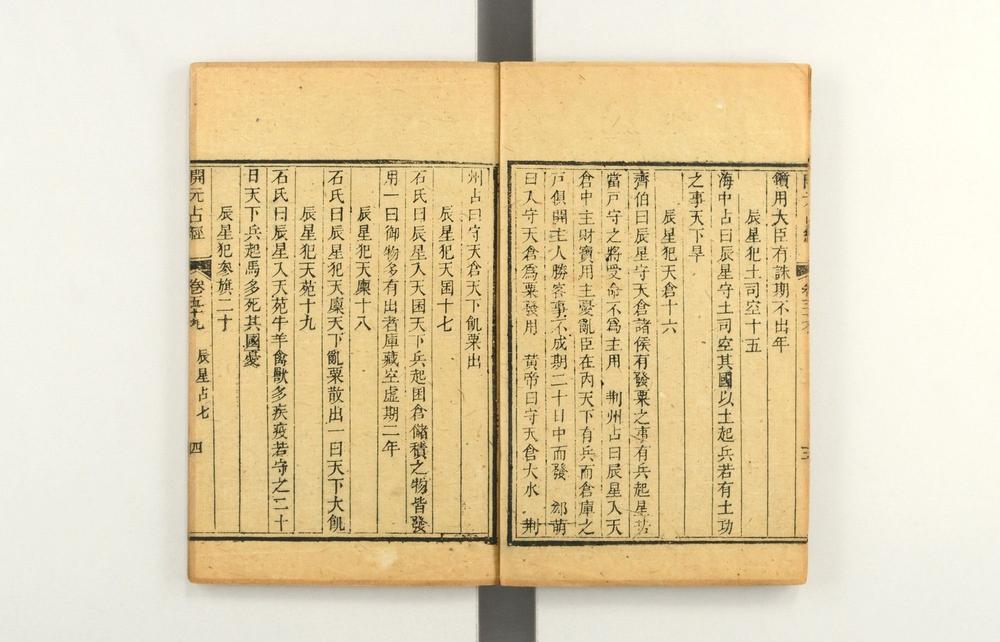 鑕用大臣有誅期不出年
辰星犯土司空十五
海中占曰辰星守土司空其國以土起兵若有土功
之事天下旱
辰星犯天倉十六
齊伯曰辰星守天倉諸侯有發粟之事有兵起星若
當戸守之將受命不爲主用 荆州占曰辰星入天
倉中主財寶用主憂亂臣在内天下有兵而倉庫之
戸俱開主人勝客事不成期二十日中而發 郄萌
曰入守天倉爲粟發用 黄帝曰守天倉大水 荆
州占曰守天倉天下飢粟出
辰星犯天囷十七
石氏曰辰星入天囷天下兵起囷倉儲積之物皆發
用一曰御物多有出者庫藏空虚期二年
辰星犯天廩十八
石氏曰辰星犯天廩天下亂粟散出一曰天下大飢
辰星犯天苑十九
石氏曰辰星入天苑牛羊禽獸多疾疫若守之二十
日天下兵起馬多死其國憂
辰星犯參旗二十
開元占經
卷五十九
辰星占七
四